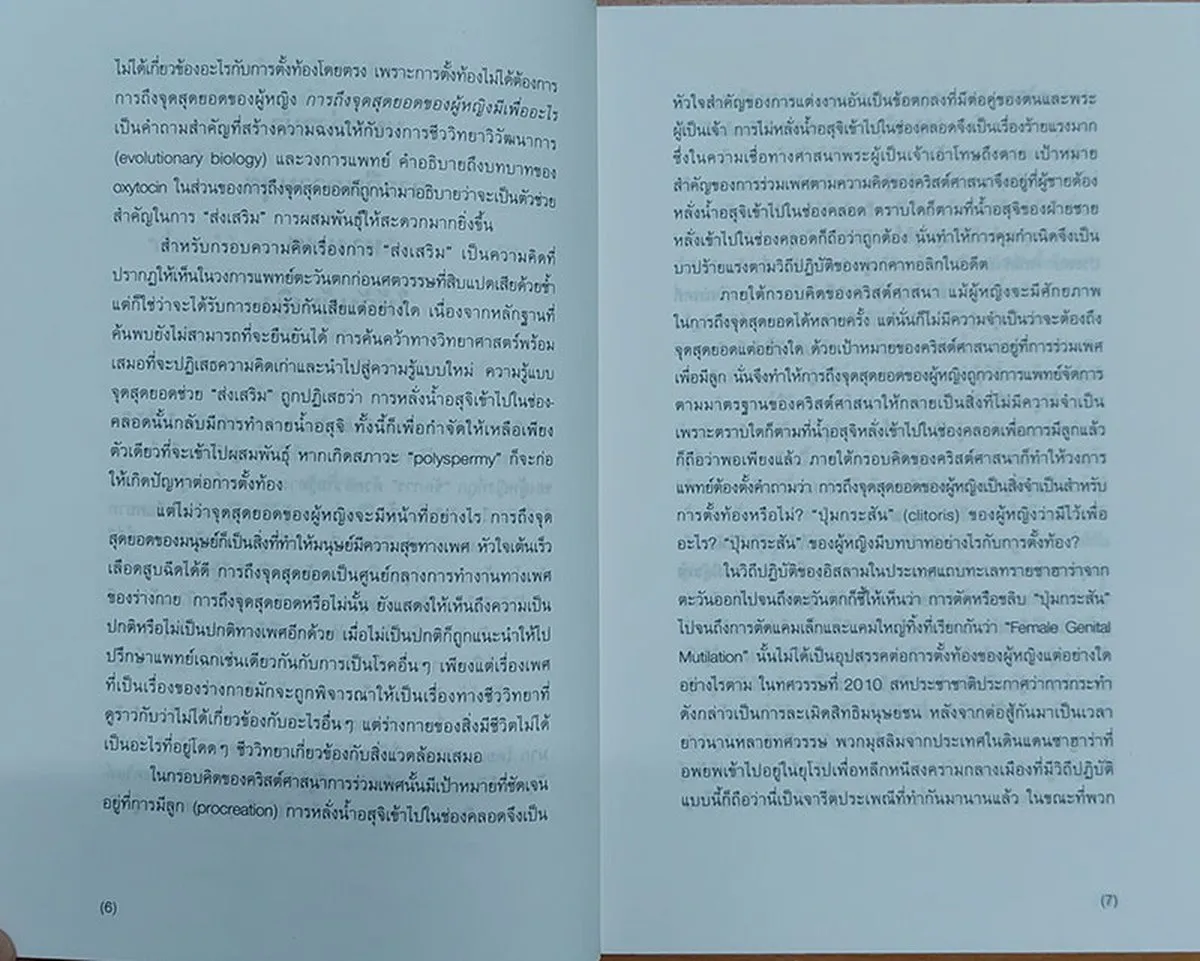 ไม่ได้เกี่ยวข้องอะไรกับการตั้งท้องโดยตรง เพราะการตั้งท้องไม่ได้ต้องการ
การถึงจุดสุดยอดของผู้หญิง การถึงจุดสุดยอดของผู้หญิงมีเพื่ออะไร
เป็นคำถามสำคัญที่สร้างความฉงนให้กับวงการชีววิทยาวิวัฒนาการ
(evolutionary biology) และวงการแพทย์ คำอธิบายถึงบทบาทของ
oxytocin ในส่วนของการถึงจุดสุดยอดก็ถูกนำมาอธิบายว่าจะเป็นตัวช่วย
สำคัญในการ “ส่งเสริม” การผสมพันธุ์ให้สะดวกมากยิ่งขึ้น
สำหรับกรอบความคิดเรื่องการ “ส่งเสริม” เป็นความคิดที่
ปรากฏให้เห็นในวงการแพทย์ตะวันตกก่อนศตวรรษที่สิบแปดเสียด้วยซ้ำ
แต่ก็ใช่ว่าจะได้รับการยอมรับกันเสียแต่อย่างใด เนื่องจากหลักฐานที่
ค้นพบยังไม่สามารถที่จะยืนยันได้ การค้นคว้าทางวิทยาศาสตร์พร้อม
เสมอที่จะปฏิเสธความคิดเก่าและนำไปสู่ความรู้แบบใหม่ ความรู้แบบ
จุดสุดยอดช่วย “ส่งเสริม” ถูกปฏิเสธว่า การหลั่งน้ำอสุจิเข้าไปในช่อง-
คลอดนั้นกลับมีการทำลายน้ำอสุจิ ทั้งนี้ก็เพื่อกำจัดให้เหลือเพียง
ตัวเดียวที่จะเข้าไปผสมพันธุ์ หากเกิดสภาวะ “polyspermy” ก็จะก่อ
ให้เกิดปัญหาต่อการตั้งท้อง
แต่ไม่ว่าจุดสุดยอดของผู้หญิงจะมีหน้าที่อย่างไร การถึงจุด
สุดยอดของมนุษย์ก็เป็นสิ่งที่ทำให้มนุษย์มีความสุขทางเพศ หัวใจเต้นเร็ว
เลือดสูบฉีดได้ดี การถึงจุดสุดยอดเป็นศูนย์กลางการทำงานทางเพศ
ของร่างกาย การถึงจุดสุดยอดหรือไม่นั้น ยังแสดงให้เห็นถึงความเป็น
ปกติหรือไม่เป็นปกติทางเพศอีกด้วย เมื่อไม่เป็นปกติก็ถูกแนะนำให้ไป
ปรึกษาแพทย์เฉกเช่นเดียวกันกับการเป็นโรคอื่นๆ เพียงแต่เรื่องเพศ
ที่เป็นเรื่องของร่างกายมักจะถูกพิจารณาให้เป็นเรื่องทางชีววิทยาที่
ดูราวกับว่าไม่ได้เกี่ยวข้องกับอะไรอื่นๆ แต่ร่างกายของสิ่งมีชีวิตไม่ได้
เป็นอะไรที่อยู่โดดๆ ชีววิทยาเกี่ยวข้องกับสิ่งแวดล้อมเสมอ
ในกรอบคิดของคริสต์ศาสนาการร่วมเพศนั้นมีเป้าหมายที่ชัดเจน
อยู่ที่การมีลูก (procreation) การหลั่งน้ำอสุจิเข้าไปในช่องคลอดจึงเป็น
(6)
หัวใจสำคัญของการแต่งงานอันเป็นข้อตกลงที่มีต่อคู่ของตนและพระ
ผู้เป็นเจ้า การไม่หลั่งน้ำอสุจิเข้าไปในช่องคลอดจึงเป็นเรื่องร้ายแรงมาก
ซึ่งในความเชื่อทางศาสนาพระผู้เป็นเจ้าเอาโทษถึงตาย เป้าหมาย
สำคัญของการร่วมเพศตามความคิดของคริสต์ศาสนาจึงอยู่ที่ผู้ชายต้อง
หลั่งน้ำอสุจิเข้าไปในช่องคลอด ตราบใดก็ตามที่น้ำอสุจิของฝ่ายชาย
หลั่งเข้าไปในช่องคลอดก็ถือว่าถูกต้อง นั่นทำให้การคุมกำเนิดจึงเป็น
บาปร้ายแรงตามวิถีปฏิบัติของพวกคาทอลิกในอดีต
ภายใต้กรอบคิดของคริสต์ศาสนา แม้ผู้หญิงจะมีศักยภาพ
ในการถึงจุดสุดยอดได้หลายครั้ง แต่นั่นก็ไม่มีความจำเป็นว่าจะต้องถึง
จุดสุดยอดแต่อย่างใด ด้วยเป้าหมายของคริสต์ศาสนาอยู่ที่การร่วมเพศ
เพื่อมีลูก นั่นจึงทำให้การถึงจุดสุดยอดของผู้หญิงถูกวงการแพทย์จัดการ
ตามมาตรฐานของคริสต์ศาสนาให้กลายเป็นสิ่งที่ไม่มีความจำเป็น
เพราะตราบใดก็ตามที่น้ำอสุจิหลั่งเข้าไปในช่องคลอดเพื่อการมีลูกแล้ว
ก็ถือว่าพอเพียงแล้ว ภายใต้กรอบคิดของคริสต์ศาสนาก็ทำให้วงการ
แพทย์ต้องตั้งคำถามว่า การถึงจุดสุดยอดของผู้หญิงเป็นสิ่งจำเป็นสำหรับ
การตั้งท้องหรือไม่? “ปุ่มกระสัน” (clitoris) ของผู้หญิงว่ามีไว้เพื่อ
อะไร? “ปุ่มกระสัน” ของผู้หญิงมีบทบาทอย่างไรกับการตั้งท้อง?
ในวิถีปฏิบัติของอิสลามในประเทศแถบทะเลทรายซาฮาร่าจาก
ตะวันออกไปจนถึงตะวันตกก็ชี้ให้เห็นว่า การตัดหรือขลิบ “ปุ่มกระสัน”
ไปจนถึงการตัดแคมเล็กและแคมใหญ่ทิ้งที่เรียกกันว่า “Female Genital
Mutilation” นั้นไม่ได้เป็นอุปสรรคต่อการตั้งท้องของผู้หญิงแต่อย่างใด
อย่างไรตาม ในทศวรรษที่ 2010 สหประชาชาติประกาศว่าการกระทำ
ดังกล่าวเป็นการละเมิดสิทธิมนุษยชน หลังจากต่อสู้กันมาเป็นเวลา
ยาวนานหลายทศวรรษ พวกมุสลิมจากประเทศในดินแดนซาฮาร่าที่
อพยพเข้าไปอยู่ในยุโรปเพื่อหลีกหนีสงครามกลางเมืองที่มีวิถีปฏิบัติ
แบบนี้ก็ถือว่านี่เป็นจารีตประเพณีที่ทำกันมานานแล้ว ในขณะที่พวก
(7)